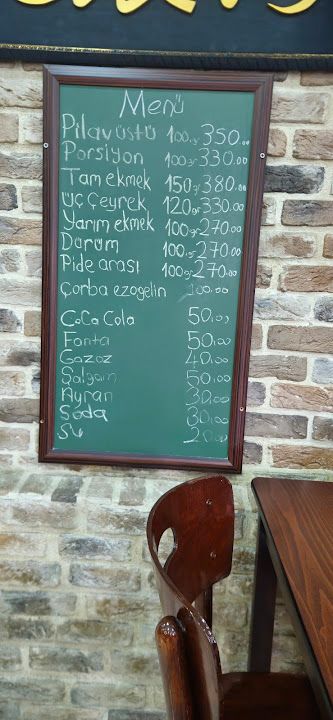 Menü
Pilavüstü 100.gr 350.00
Porsiyon 100.gr 330.00
Tam ekmek 150gr 380.00
Üç çeyrek 120.gr 330.00
Yarım ekmek 100.gr 270.00
Dürüm 100.gr 270.00
Pide arası 100.gr 270.00
Çorba ezogelin 100.00
CoCa Cola 50.00
Fanta 50.00
Gazoz 40.00
Şalgam 50.00
Ayran 30.00
Soda 30.00
Su 20.00